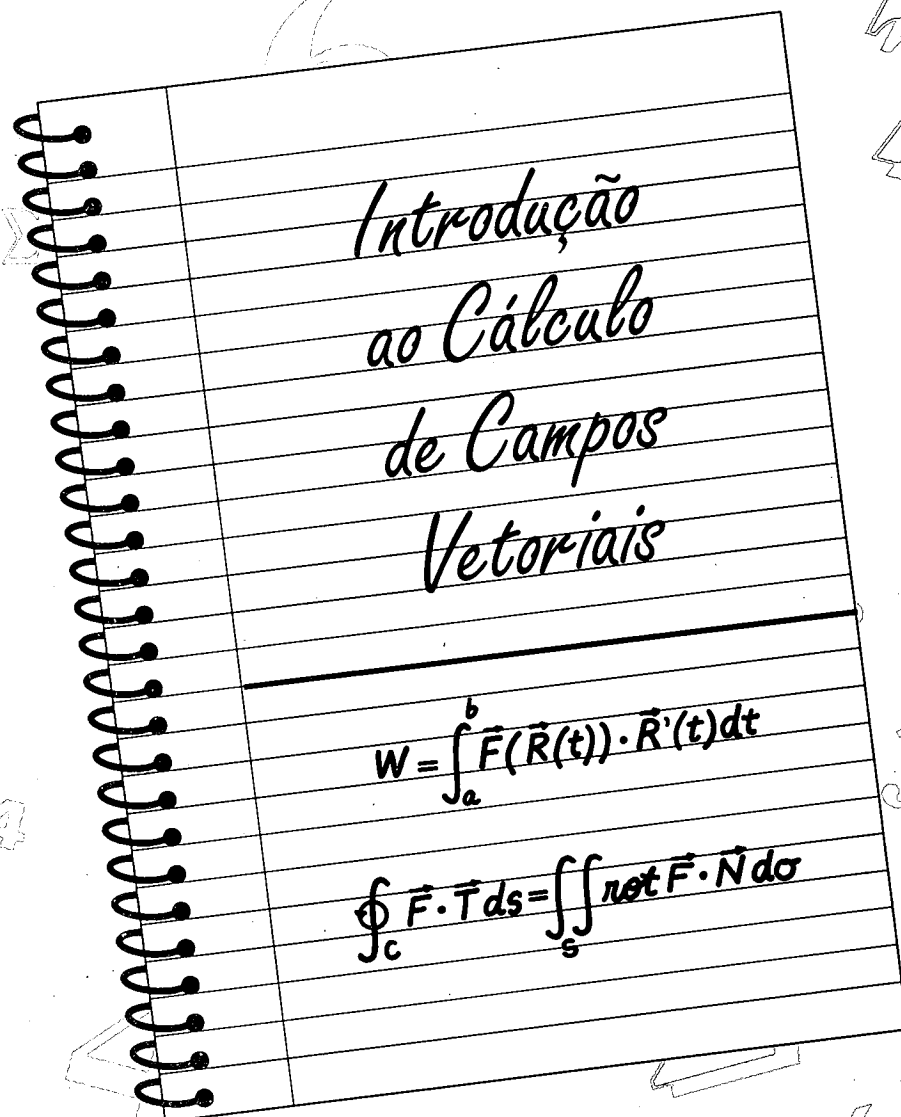 Introdução
ao Cálculo
de Campos
Vetoriais
W = ∫_a^b F⃗(R⃗(t)) · R⃗'(t) dt
∮_C F⃗ · T⃗ ds = ∬_S rot F⃗ · N⃗ dσ